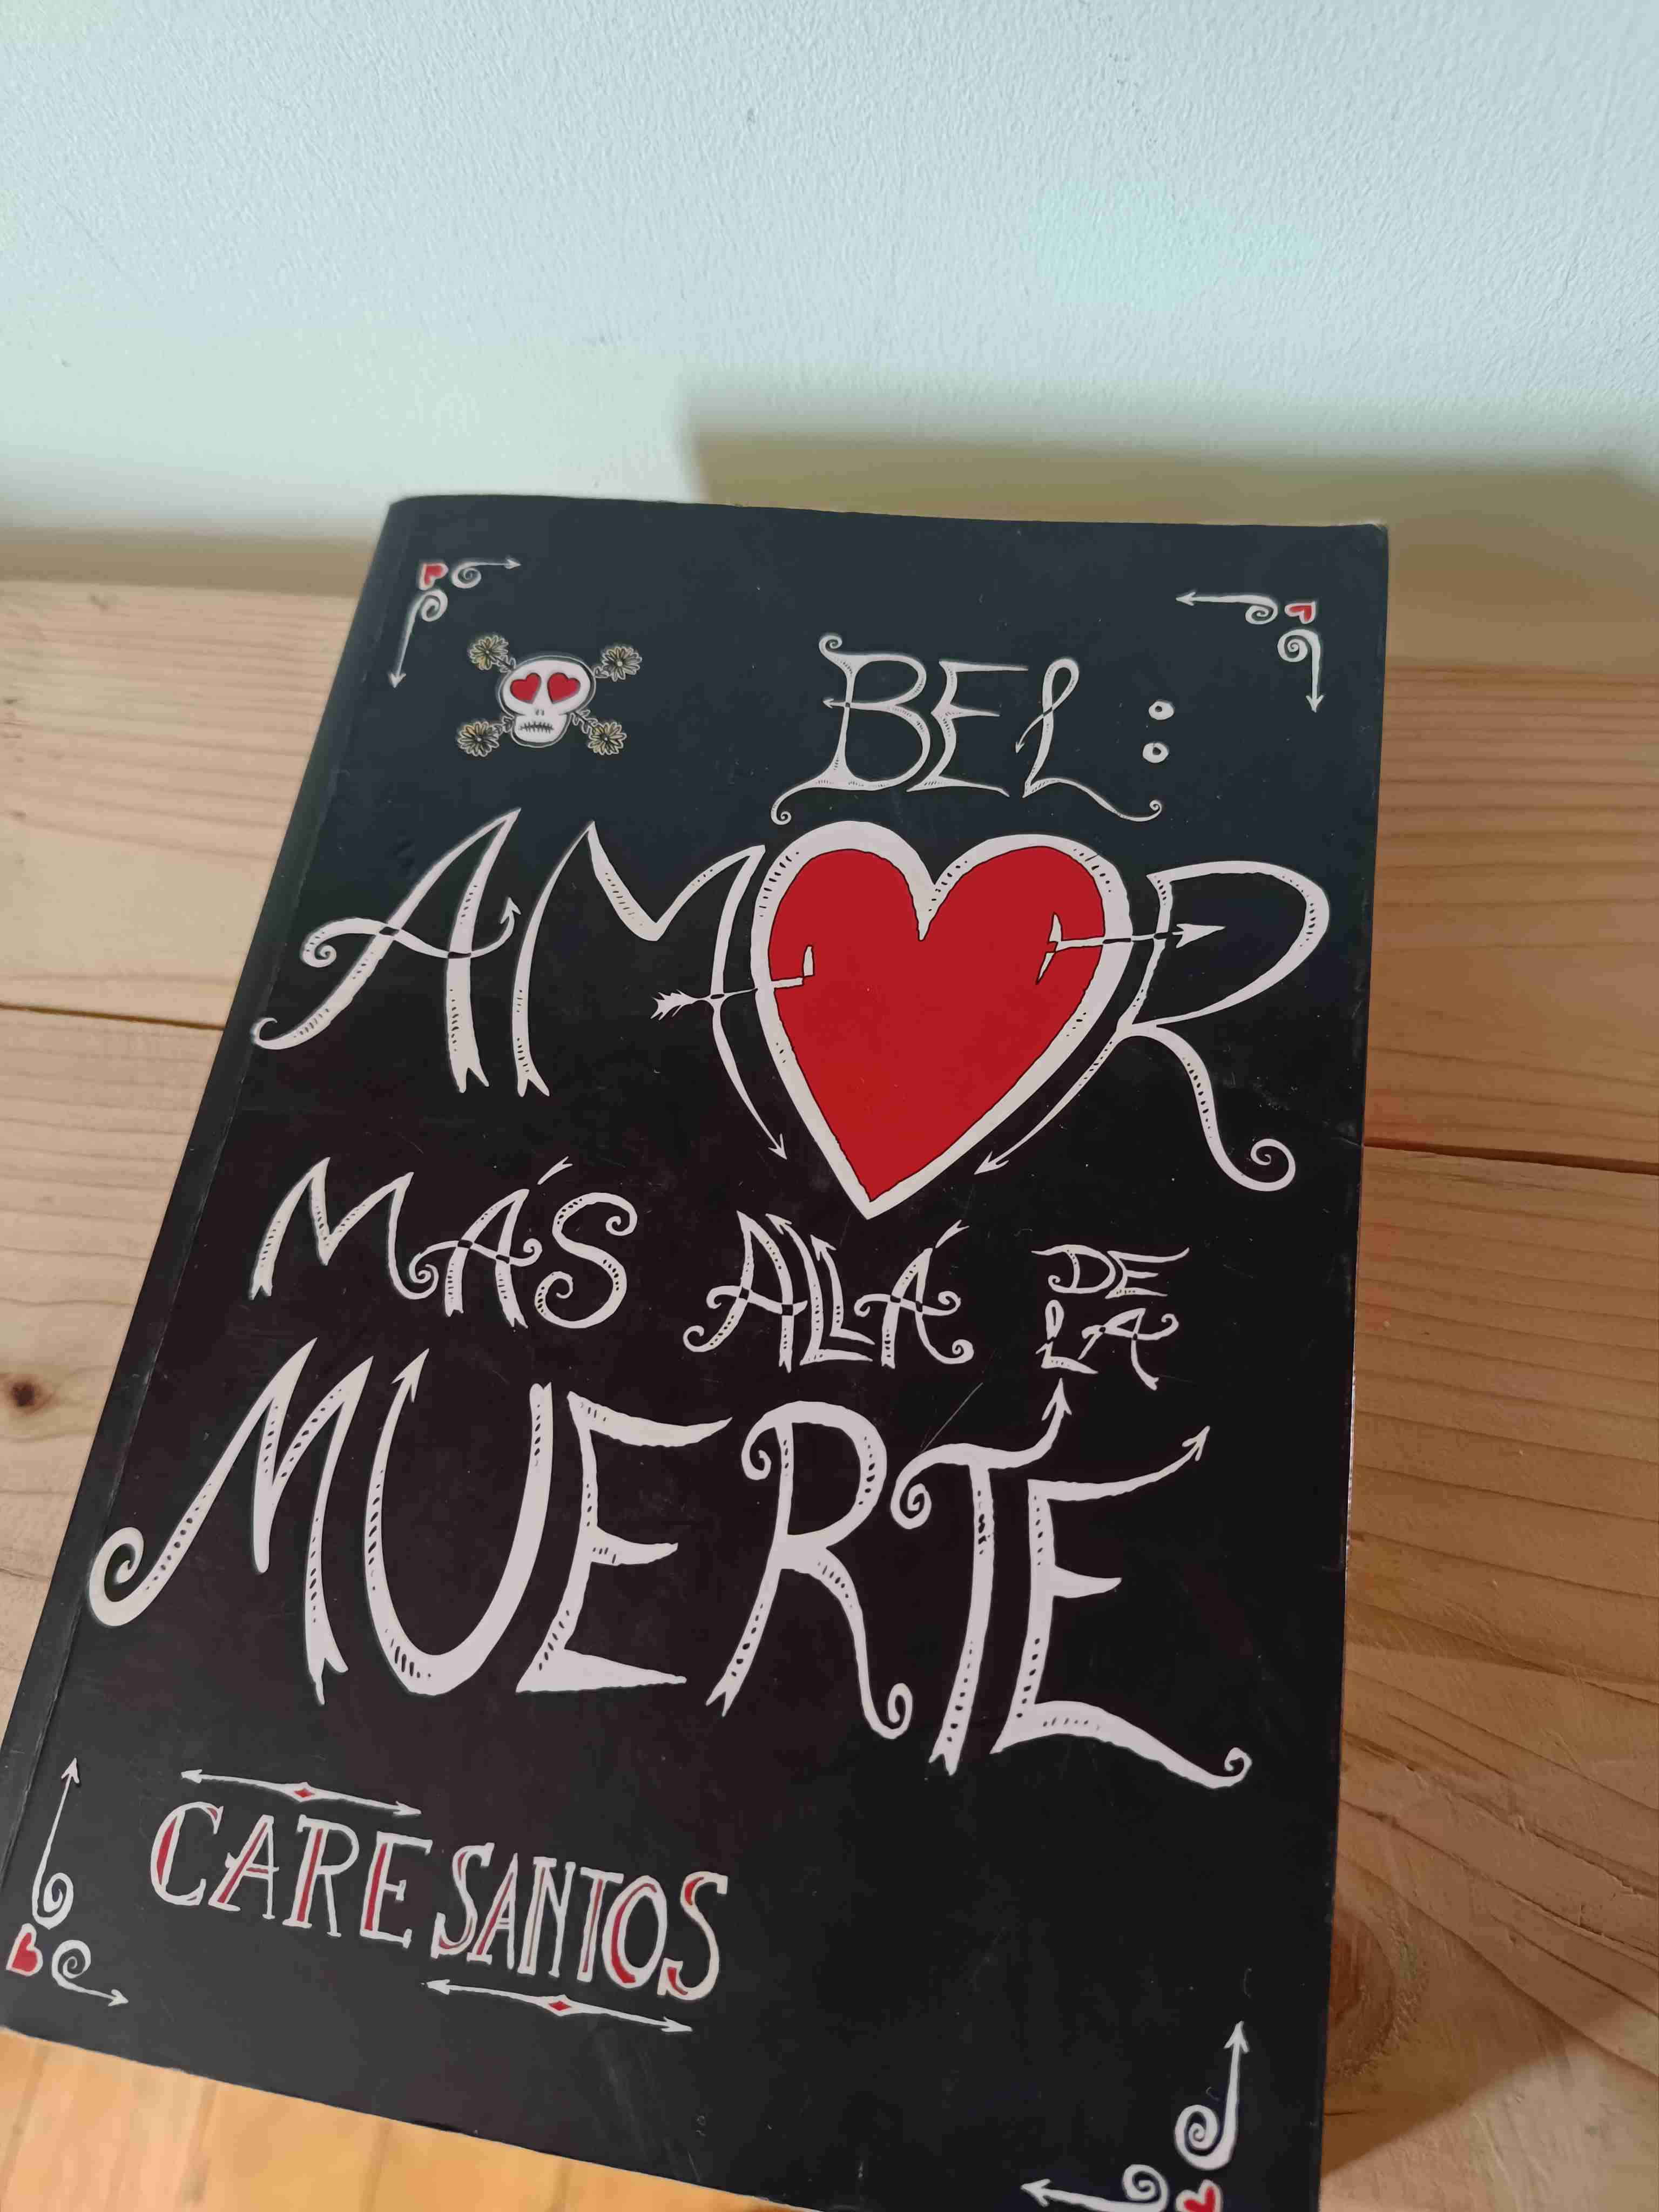 BEL:
AMOR
MÁS ALLÁ DE
LA
MUERTE
CARE SANTOS